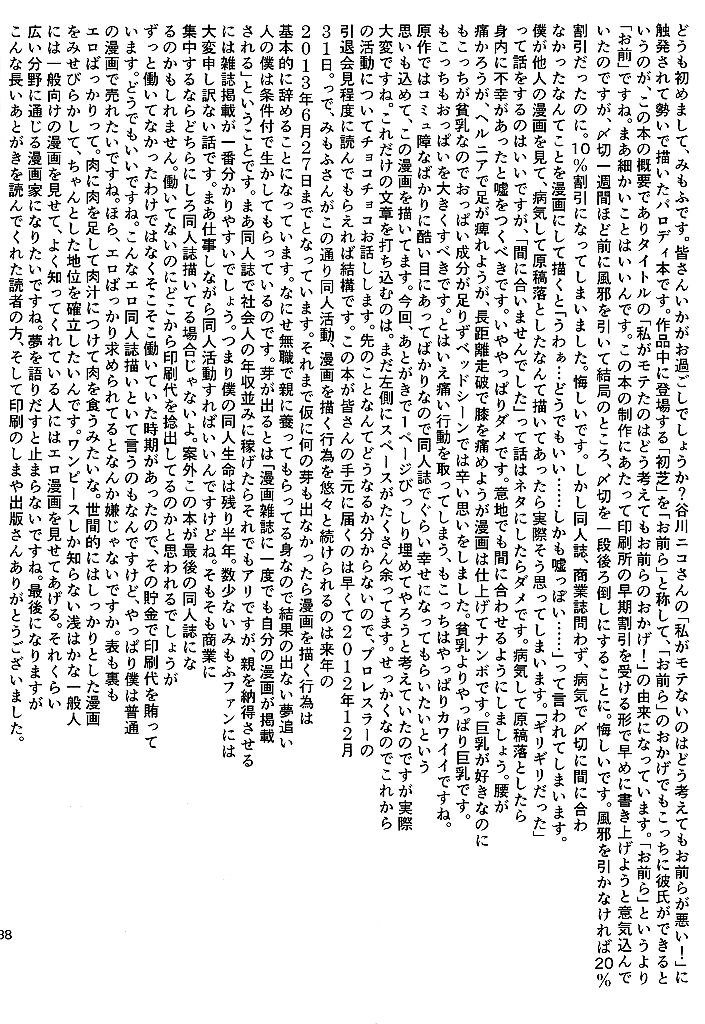 どうも初めまして、みもふです。皆さんいかがお過ごしでしょうか？谷川ニコさんの「私がモテないのはどう考えてもお前らが悪い！」に
触発されて勢いで描いたパロディ本です。作品中に登場する「初芝」を「お前ら」と称して、「お前ら」のおかげでもこっちに彼氏ができると
いうのが、この本の概要でありタイトルの「私がモテたのはどう考えてもお前らのおかげ！」の由来になっています。「お前ら」というより
「お前」ですね。まあ細かいことはいいんです。この本の制作にあたって印刷所の早期割引を受ける形で早めに書き上げようと意気込んで
いたのですが、〆切一週間ほど前に風邪を引いて結局のところ、〆切を一段後ろ倒しにすることに。悔しいです。風邪を引かなければ20％
割引だったのに。10％割引になってしまいました。悔しいです。しかし同人誌、商業誌問わず、病気で〆切に間に合わ
なかったなんてことを漫画にして描くと「うわぁ…どうでもいい……しかも嘘っぽい……」って言われてしまいます。
僕が他人の漫画を見て、病気して原稿落としたなんて描いてあったら実際そう思ってしまいます。「ギリギリだった」
って話をするのはいいですが、「間に合いませんでした」って話はネタにしたらダメです。病気して原稿落としたら
身内に不幸があったと嘘をつくべきです。いややっぱりダメです。意地でも間に合わせるようにしましょう。腰が
痛かろうが、ヘルニアで足が痺れようが、長距離走破で膝を痛めようが漫画は仕上げてナンボです。巨乳が好きなのに
もこっちが貧乳なのでおっぱい成分が足りずベッドシーンでは辛い思いをしました。貧乳よりやっぱり巨乳です。
もこっちもおっぱいを大きくすべきです。とはいえ痛い行動を取ってしまう、もこっちはやっぱりカワイイですね。
原作ではコミュ障なばかりに酷い目にあってばかりなので同人誌でぐらい幸せになってもらいたいという
思いも込めて、この漫画を描いてます。今回、あとがきで１ページびっしり埋めてやろうと考えていたのですが実際
大変ですね。これだけの文章を打ち込むのは。まだ左側にスペースがたくさん余ってます。せっかくなのでこれから
の活動についてチョコチョコお話しします。先のことなんてどうなるか分からないので、プロレスラーの
引退会見程度に読んでもらえれば結構です。この本が皆さんの手元に届くのは早くて２０１２年１２月
３１日。っで、みもふさんがこの通り同人活動、漫画を描く行為を悠々と続けられるのは来年の
２０１３年６月２７日までとなっています。それまで仮に何の芽も出なかったら漫画を描く行為は
基本的に辞めることになっています。なにせ無職で親に養ってもらってる身なので結果の出ない夢追い
人の僕は条件付で生かしてもらっているのです。芽が出るとは「漫画雑誌に一度でも自分の漫画が掲載
される」ということです。まあ同人誌で社会人の年収並みに稼げたらそれでもアリですが、親を納得させる
には雑誌掲載が一番分かりやすいでしょう。つまり僕の同人生命は残り半年。数少ないみもふファンには
大変申し訳ない話です。まあ仕事しながら同人活動すればいいんですけどね。そもそも商業に
集中するならどちらにしろ同人誌描いてる場合じゃないよ。案外この本が最後の同人誌にな
るのかもしれません。働いてないのにどこから印刷代を捻出してるのかと思われるでしょうが
ずっと働いてなかったわけではなくそこそこ働いていた時期があったので、その貯金で印刷代を賄って
います。どうでもいいですね。こんなエロ同人誌描いといて言うのもなんですけど、やっぱり僕は普通
の漫画で売れたいですね。ほら、エロばっかり求められてるとなんか嫌じゃないですか。表も裏も
エロばっかりって。肉に肉を足して肉汁につけて肉を食うみたいな。世間的にはしっかりとした漫画
をみせびらかして、ちゃんとした地位を確立したいんです。ワンピースしか知らない浅はかな一般人
には一般向けの漫画を見せて、よく知ってくれている人にはエロ漫画を見せてあげる。それくらい
広い分野に通じる漫画家になりたいですね。夢を語りだすと止まらないですね。最後になりますが
こんな長いあとがきを読んでくれた読者の方、そして印刷のしまや出版さんありがとうございました。
38